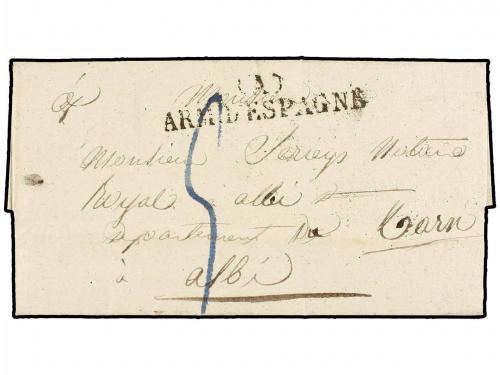 (A)
ARM. D'ESPAGNE
Monsieur
Monsieur Serieys Notaire
Royal à albi
département du Tarn
à albi
5